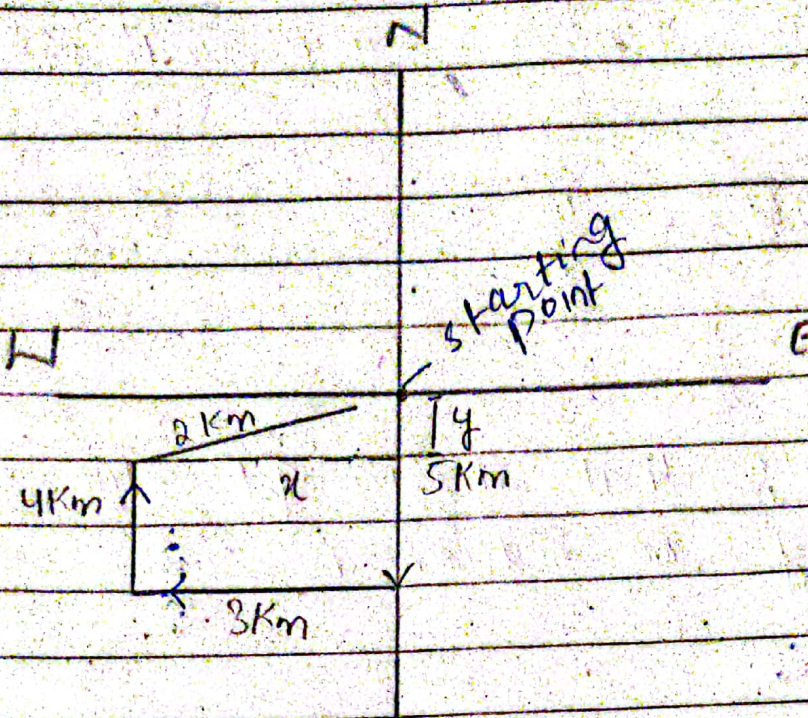 N
starting
point
W
E
2 Km
y
x
5Km
4Km
3Km